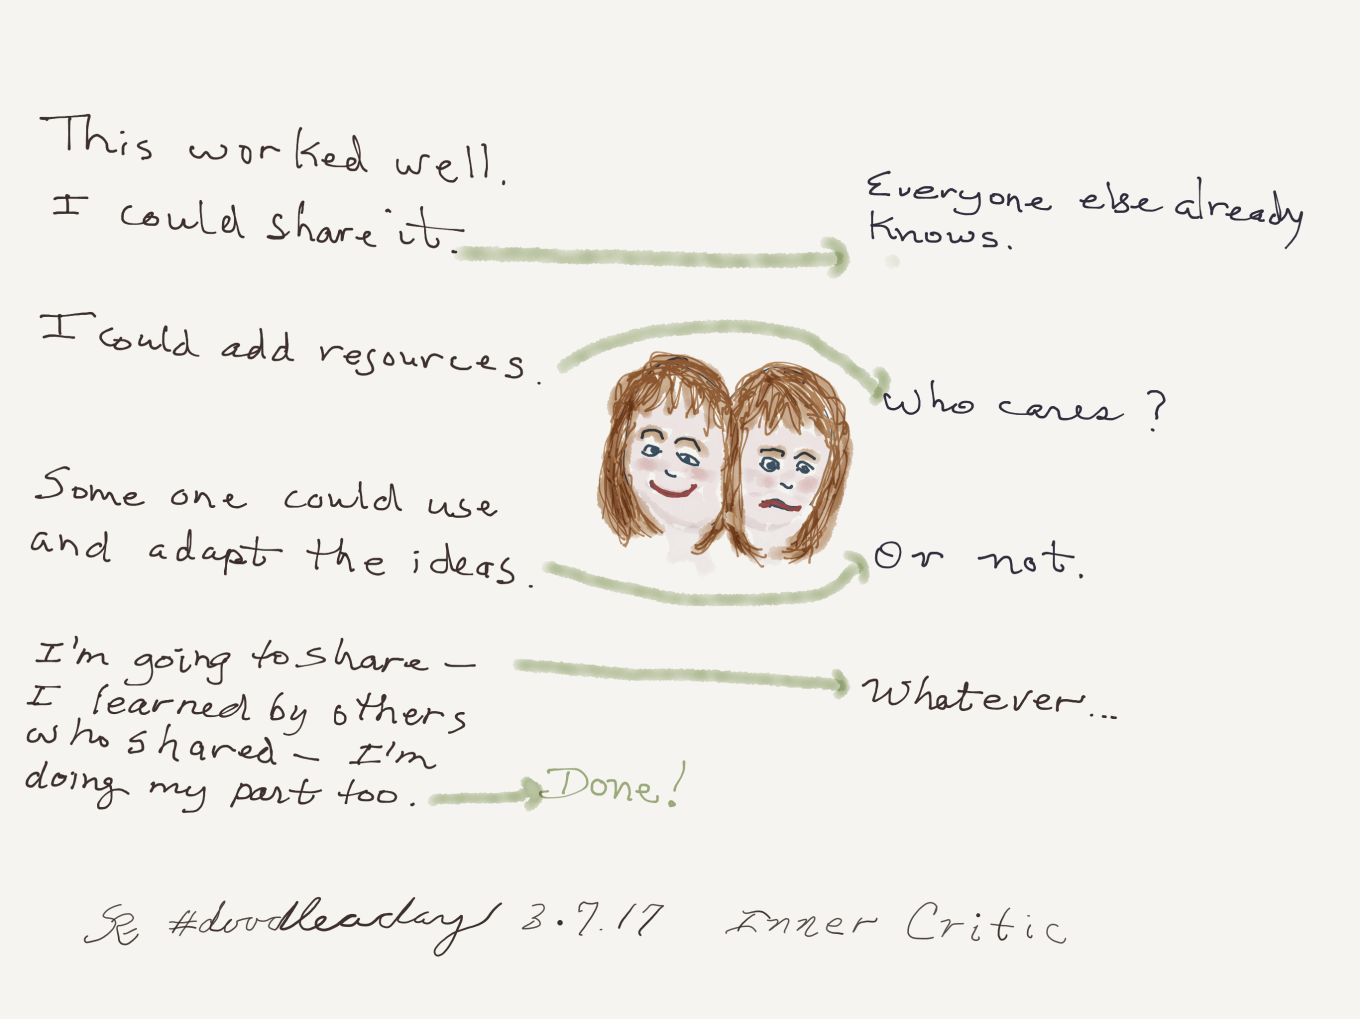 This worked well.
I could share it.
Everyone else already
knows.
I could add resources.
Who cares?
Some one could use
and adapt the ideas.
Or not.
I'm going to share –
I learned by others
who shared – I'm
doing my part too.
Whatever...
Done!
#doodleaday 3.7.17 Inner Critic